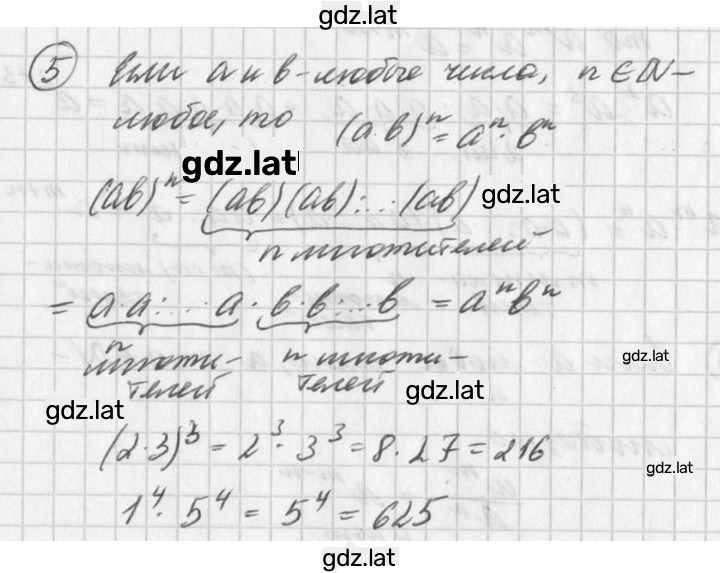 gdz.lat
5 Если a и b - любые числа, n ∈ N -
любое, то (a·b)ⁿ = aⁿ · bⁿ
gdz.lat
(ab)ⁿ = (ab)(ab)·...·(ab) gdz.lat
n множителей
= a·a·...·a · b·b·...·b = aⁿbⁿ
n множи- n множи- gdz.lat
телей телей gdz.lat
gdz.lat
(2·3)³ = 2³ · 3³ = 8·27 = 216
gdz.lat
1⁴ · 5⁴ = 5⁴ = 625
gdz.lat